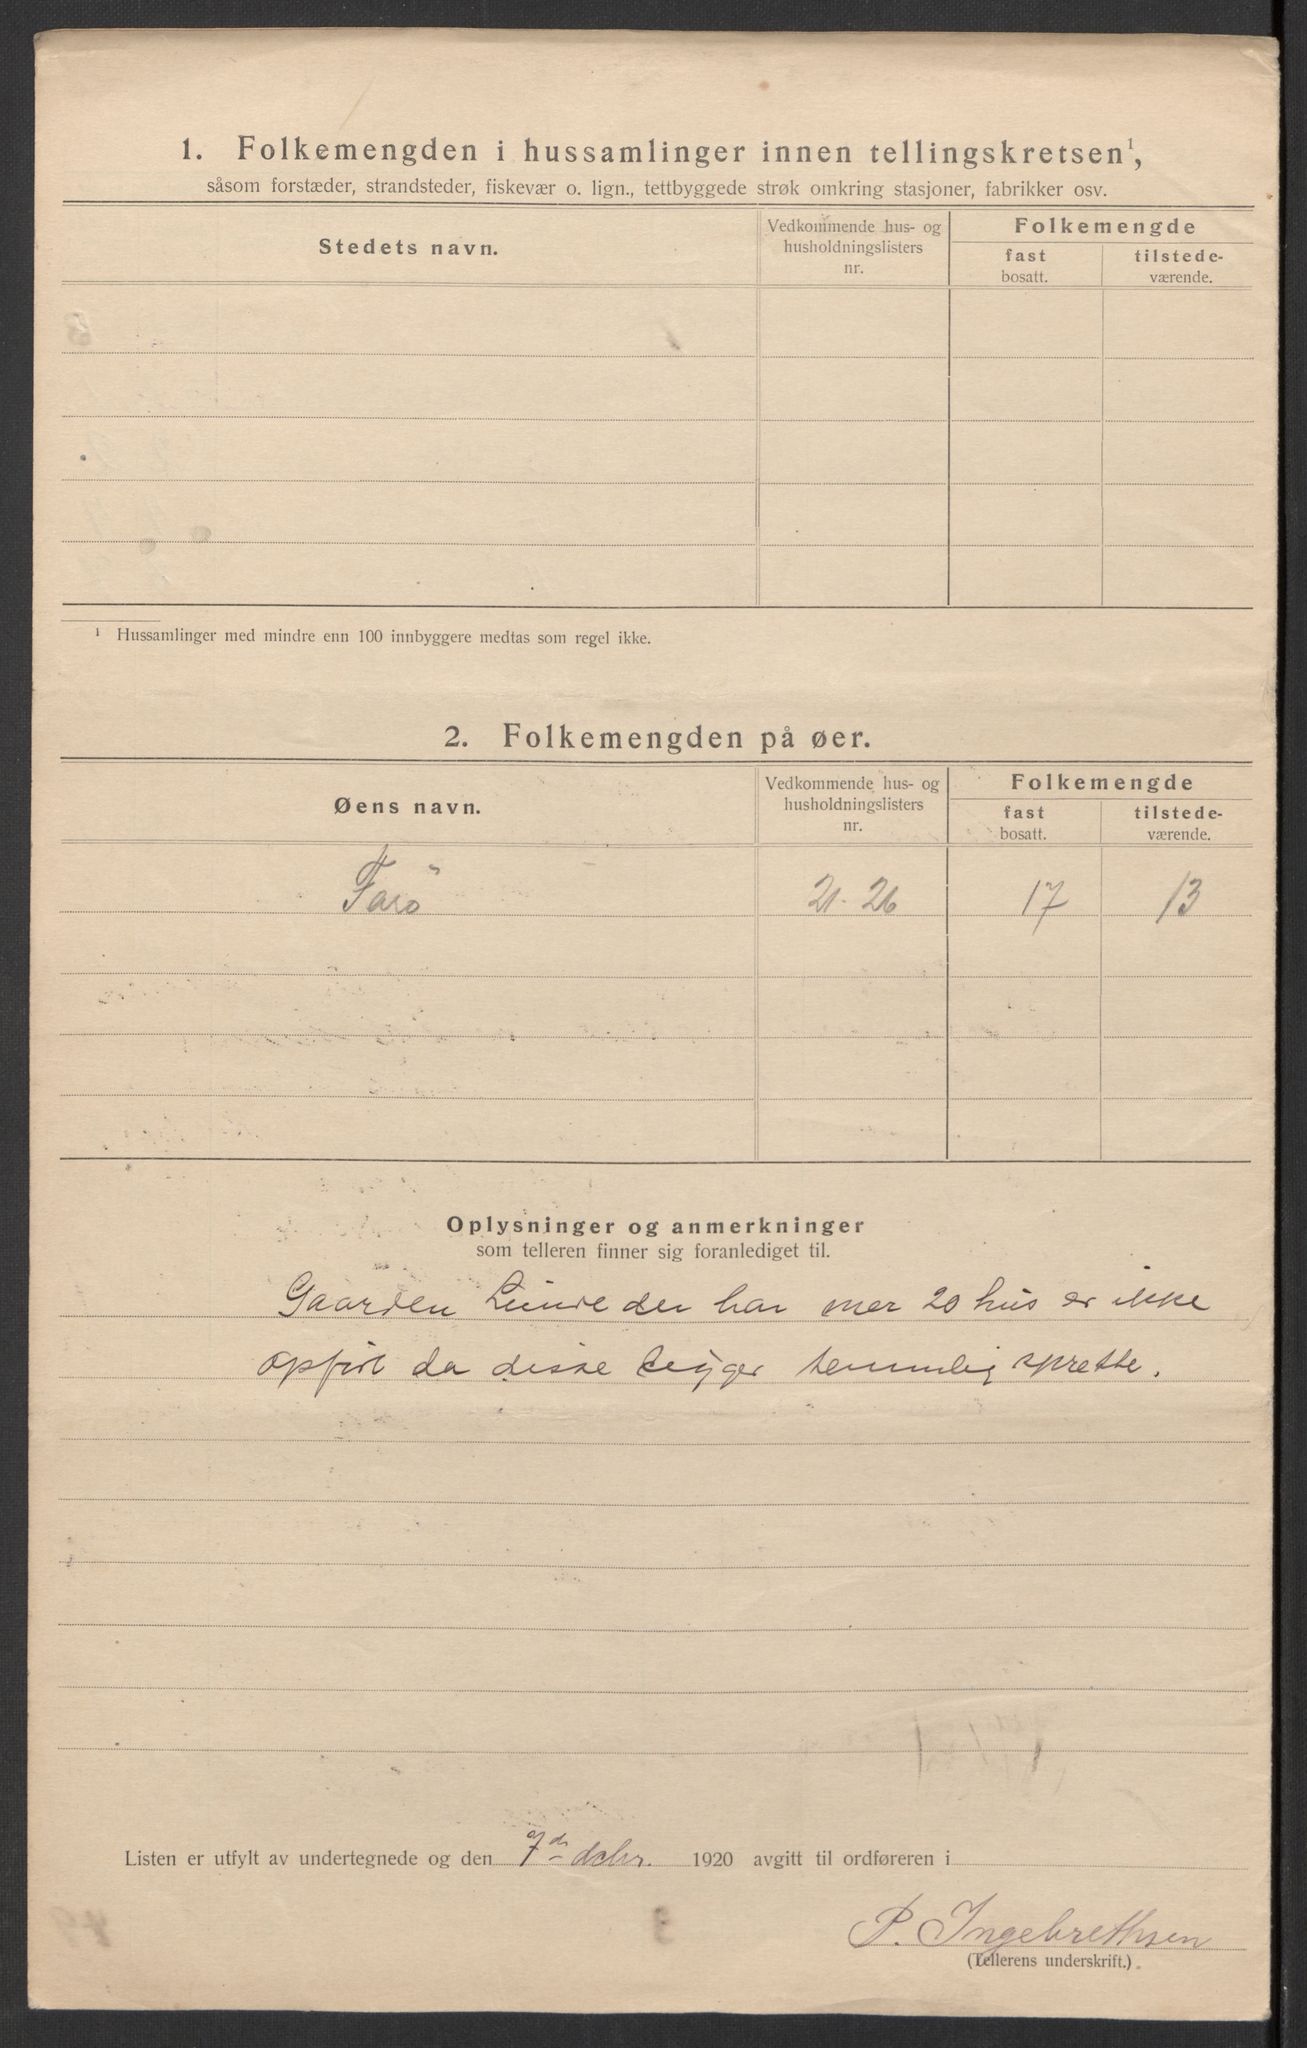 1. Folkemengden i hussamlinger innen tellingskretsen¹,
såsom forstæder, strandsteder, fiskevær o. lign., tettbyggede strøk omkring stasjoner, fabrikker osv.
Stedets navn.
Vedkommende hus- og
husholdningslisters
nr.
Folkemengde
fast
bosatt.
tilstede-
værende.
¹ Hussamlinger med mindre enn 100 innbyggere medtas som regel ikke.
2. Folkemengden på øer.
Øens navn.
Vedkommende hus- og
husholdningslisters
nr.
Folkemengde
fast
bosatt.
tilstede-
værende.
Farö 21-26 17 13
Oplysninger og anmerkninger
som telleren finner sig foranlediget til.
Gaarden Lunde der har mer 20 hus er ikke
opført da disse ligger temmelig sprette.
Listen er utfylt av undertegnede og den 7de debr. 1920 avgitt til ordføreren i
P. Ingebrethsen
(Tellerens underskrift.)